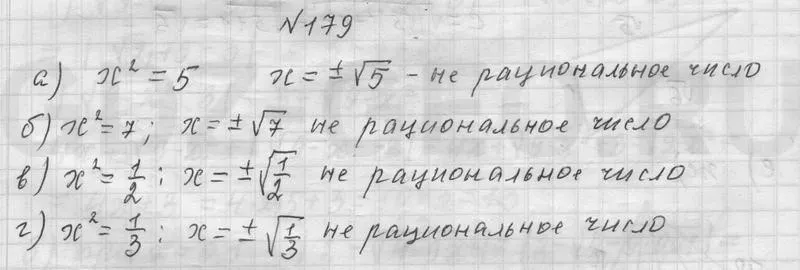 №179
а) x² = 5 x = ±√5 - не рациональное число
б) x² = 7; x = ±√7 не рациональное число
в) x² = 1/2; x = ±√(1/2) не рациональное число
г) x² = 1/3; x = ±√(1/3) не рациональное число